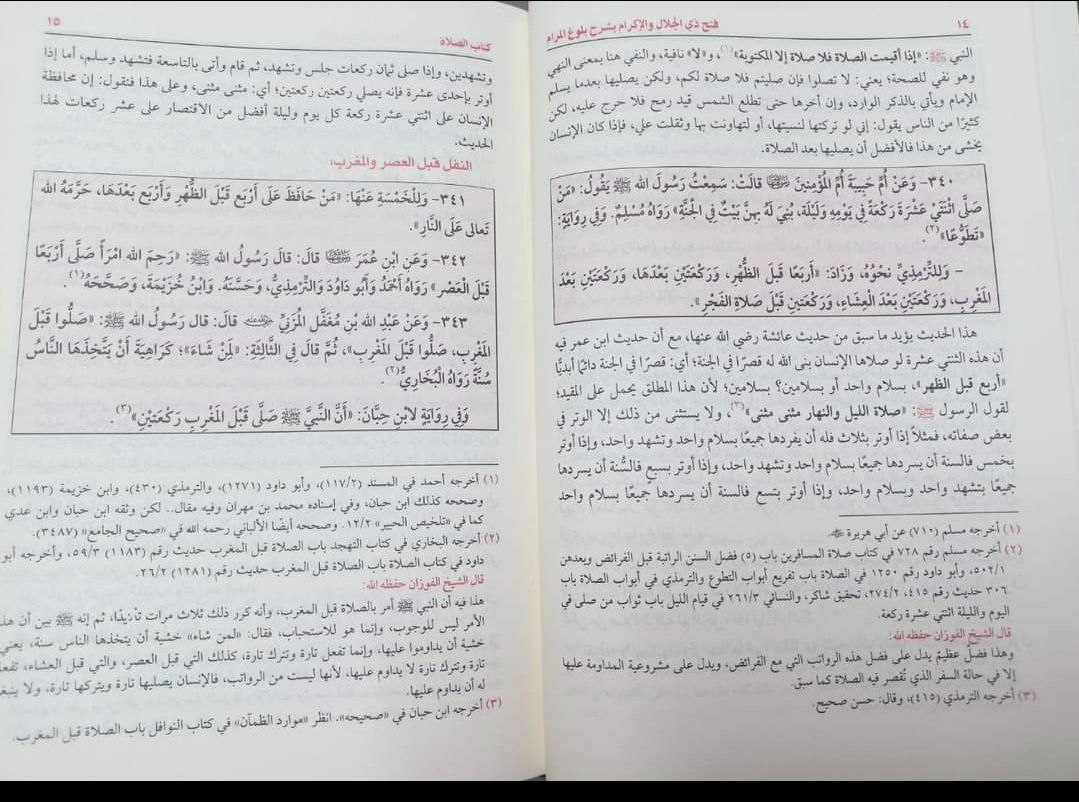 ١٤
فتح ذي الجلال والإكرام بشرح بلوغ المرام
النبي ﷺ: «إذا أقيمت الصلاة فلا صلاة إلا المكتوبة»(١)، و«لا» نافية، والنفي هنا بمعنى النهي
وهو نفي للصحة؛ يعني: لا تصلوا فإن صليتم فلا صلاة لكم، ولكن يصليها بعدما يسلم
الإمام ويأتي بالذكر الوارد، وإن أخرها حتى تطلع الشمس قيد رمح فلا حرج عليه، لكن
كثيرًا من الناس يقول: إني لو تركتها لنسيتها، أو لتهاونت بها وثقلت علي، فإذا كان الإنسان
يخشى من هذا فالأفضل أن يصليها بعد الصلاة.
٣٤٠- وَعَنْ أُمِّ حَبِيبَةَ أُمِّ المُؤْمِنِينَ قَالَتْ: سَمِعْتُ رَسُولَ الله ﷺ يَقُولُ: «مَنْ
صَلَّى اثْنَتَيْ عَشْرَةَ رَكْعَةً فِي يَوْمِهِ وَلَيْلَةٍ، بُنِيَ لَهُ بِهِنَّ بَيْتٌ فِي الجَنَّةِ» رَوَاهُ مُسْلِمٌ. وَفِي رِوَايَةٍ:
«تَطَوُّعًا»(٢).
- وَلِلتِّرْمِذِيِّ نَحْوُهُ، وَزَادَ: «أَرْبَعًا قَبْلَ الظُّهْرِ، وَرَكْعَتَيْنِ بَعْدَهَا، وَرَكْعَتَيْنِ بَعْدَ
المَغْرِبِ، وَرَكْعَتَيْنِ بَعْدَ الْعِشَاءِ، وَرَكْعَتَينِ قَبْلَ صَلَاةِ الْفَجْرِ».
هذا الحديث يؤيد ما سبق من حديث عائشة رضي الله عنها، مع أن حديث ابن عمر فيه
أن هذه الثنتي عشرة لو صلاها الإنسان بنى الله له قصرًا في الجنة؛ أي: قصرًا في الجنة دائمًا أبديًّا
«أربع قبل الظهر»، بسلام واحد أو بسلامين؟ بسلامين؛ لأن هذا المطلق يحمل على المقيد؛
لقول الرسول ﷺ: «صلاة الليل والنهار مثنى مثنى»(٣)، ولا يستثنى من ذلك إلا الوتر في
بعض صفاته، فمثلاً إذا أوتر بثلاث فله أن يفردها جميعًا بسلام واحد وتشهد واحد، وإذا أوتر
بخمس فالسنة أن يسردها جميعًا بسلام واحد وتشهد واحد، وإذا أوتر بسبع فالسُّنة أن يسردها
جميعًا بتشهد واحد وبسلام واحد، وإذا أوتر بتسع فالسنة أن يسردها جميعًا بسلام واحد
(١) أخرجه مسلم (٧١٠) عن أبي هريرة
(٢) أخرجه مسلم رقم ٧٢٨ في كتاب صلاة المسافرين باب (٥) فضل السنن الراتبة قبل الفرائض وبعدهن
٥٠٢/١، وأبو داود رقم ١٢٥٠ في الصلاة باب تفريع أبواب التطوع والترمذي في أبواب الصلاة باب
٣٠٦ حديث رقم ٤١٥، ٢٧٤/٢، تحقيق شاكر، والنسائي ٢٦١/٣ في قيام الليل باب ثواب من صلى في
اليوم والليلة اثنتي عشرة ركعة.
قال الشيخ الفوزان حفظه الله:
وهذا فضلٌ عظيمٌ يدل على فضل هذه الرواتب التي مع الفرائض، ويدل على مشروعية المداومة عليها
إلا في حالة السفر الذي تُقصر فيه الصلاة كما سبق.
(٣) أخرجه الترمذي (٤١٥)، وقال: حسن صحيح.
كتاب الصلاة
١٥
وتشهدين، وإذا صلى ثمان ركعات جلس وتشهد، ثم قام وأتى بالتاسعة فتشهد وسلم، أما إذا
أوتر بإحدى عشرة فإنه يصلي ركعتين ركعتين؛ أي: مثنى مثنى، وعلى هذا فنقول: إن محافظة
الإنسان على اثنتي عشرة ركعة كل يوم وليلة أفضل من الاقتصار على عشر ركعات لهذا
الحديث.
النفل قبل العصر والمغرب:
٣٤١- وَلِلْخَمْسَةِ عَنْهَا: «مَنْ حَافَظَ عَلَى أَرْبَعٍ قَبْلَ الظُّهْرِ وَأَرْبَعٍ بَعْدَهَا، حَرَّمَهُ الله
تَعَالى عَلَى النَّارِ».
٣٤٢- وَعَنِ ابْنِ عُمَرَ قَالَ: قَالَ رَسُولُ الله ﷺ: «رَحِمَ الله امْرَأً صَلَّى أَرْبَعًا
قَبْلَ الْعَصْرِ» رَوَاهُ أَحْمَدُ وَأَبُو دَاوُدَ وَالتِّرْمِذِيُّ، وَحَسَّنَهُ. وَابْنُ خُزَيْمَةَ، وَصَحَّحَهُ(١).
٣٤٣- وَعَنْ عَبْدِ الله بْنِ مُغَفَّلٍ الْمُزَنِيِّ قَالَ: قال رَسُولُ الله ﷺ: «صَلُّوا قَبْلَ
المَغْرِبِ، صَلُّوا قَبْلَ المَغْرِبِ»، ثُمَّ قَالَ فِي الثَّالِثَةِ: «لِمَنْ شَاءَ»؛ كَرَاهِيَةَ أَنْ يَتَّخِذَهَا النَّاسُ
سُنَّةً رَوَاهُ الْبُخَارِيُّ(٢).
وَفِي رِوَايَةٍ لابْنِ حِبَّانَ: «أَنَّ النَّبِيَّ ﷺ صَلَّى قَبْلَ المَغْرِبِ رَكْعَتَيْنِ»(٣).
(١) أخرجه أحمد في المسند (١١٧/٢)، وأبو داود (١٢٧١)، والترمذي (٤٣٠)، وابن خزيمة (١١٩٣)،
وصححه كذلك ابن حبان، وفي إسناده محمد بن مهران وفيه مقال.. لكن وثقه ابن حبان وابن عدي
كما في «تلخيص الحبير» ١٢/٢. وصححه أيضًا الألباني رحمه الله في «صحيح الجامع» (٣٤٨٧).
(٢) أخرجه البخاري في كتاب التهجد باب الصلاة قبل المغرب حديث رقم (١١٨٣) ٥٩/٣، وأخرجه أبو
داود في كتاب الصلاة باب الصلاة قبل المغرب حديث رقم (١٢٨١) ٢٦/٢.
قال الشيخ الفوزان حفظه الله:
هذا فيه أن النبي ﷺ أمر بالصلاة قبل المغرب، وأنه كرر ذلك ثلاث مرات ثم إنه ﷺ بين أن هذ
الأمر ليس للوجوب، وإنما هو للاستحباب، فقال: «لمن شاء» خشية أن يتخذها الناس سنة، يعني
خشية أن يداوموا عليها، وإنما تفعل تارة وتترك تارة، كذلك التي قبل العصر، والتي قبل العشاء، تفعل
تارة وتترك تارة لا يداوم عليها، لأنها ليست من الرواتب، فالإنسان يصليها تارة ويتركها تارة، ولا
له أن يداوم عليها.
(٣) أخرجه ابن حبان في «صحيحه». انظر «موارد الظمآن» في كتاب النوافل باب الصلاة قبل المغرب.